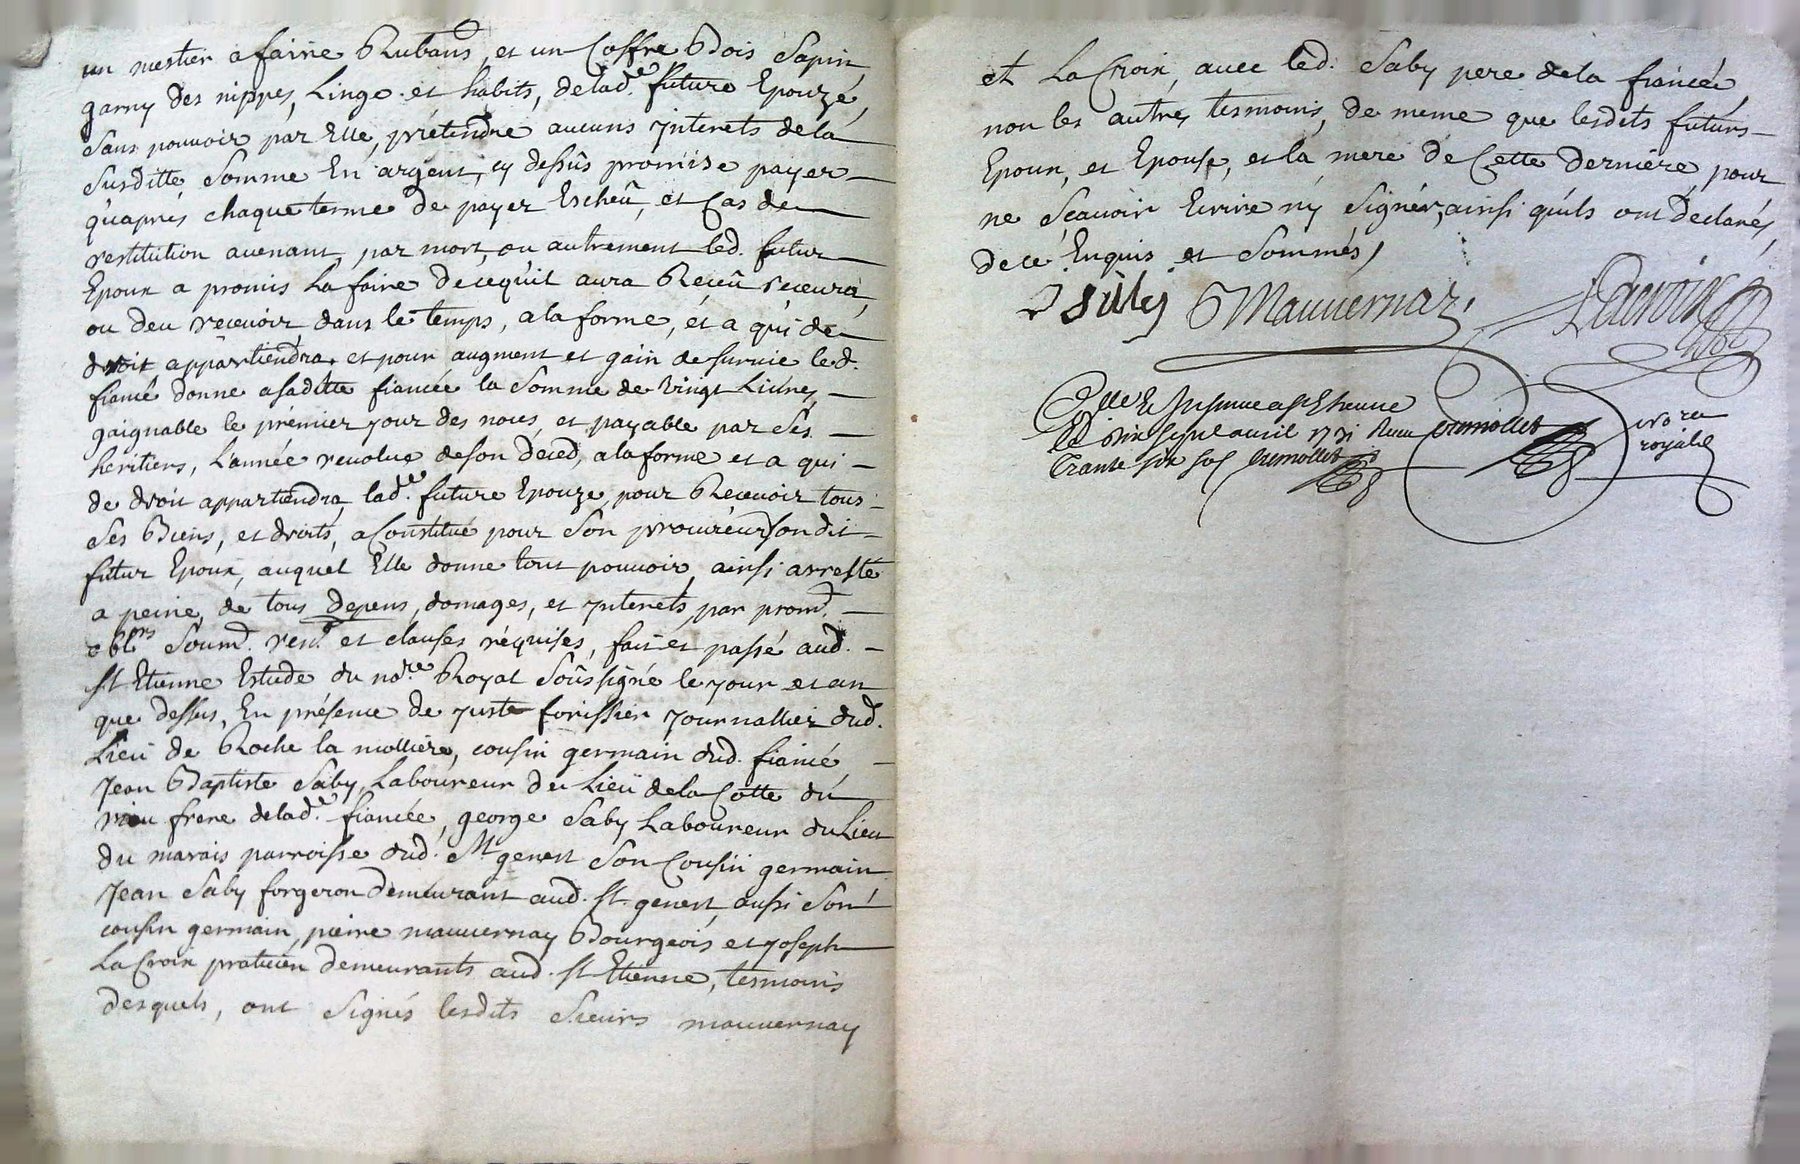 un mestier a faire Rubans, et un Coffre Bois Sapin
garny des nippes, Linge et habits, delad.e future Epouze,
Sans pouvoir par Elle, prétendre aucuns jnterets dela
Susditte Somme En argent, cy dessûs promise payer
qu'aprés chaque terme de payer Escheû, et Cas de
restitution auenant, par mort, ou autrement led. futur
Epoux a promis La faire de cequ'il aura Receû receura,
ou deu receuoir dans le temps, a la forme, et a qui de
droit appartiendra, et pour augment et gain de suruie led.
fiancé donne asaditte fiancée la Somme de Vingt Liures,
gaignable le prémier jour des noces, et payable par Ses
heritiers, L'année reuolue deson déced, alaforme et a qui
de droit appartiendra, lad.e future Epouze, pour Receuoir tous
Ses Biens, et droits, a Constitué pour Son procureur Sondit
futur Epoux, auquel Elle donne tout pouuoir, ainsi arresté
a peine de tous depens, domages, et jnterets, par prom.d
obl.ns Soum.d ren.d et clauses réquises, fait et passé aud.
St Etienne Estude du no.re Royal Soûssigné le jour et an
que dessus, En présence de juste forissier journallier dud.
Lieu de Roche la molliere, cousin germain dud. fiancé
Jean Baptiste Saby, Laboureur du Lieu dela Cotte du
frere delad.e fiancée, george Saby Laboureur du Lieu
du marais parroisse dud. St genest Son Cousin germain
Jean Saby forgeron demeurant aud. St genest, aussi Son
cousin germain, pierre mauuernay Bourgeois et joseph
La Croix praticien demeurants aud. St Etienne, tesmoins
desquels, ont Signés lesdits Sieurs mauuernay
et La Croix, auec led. Saby pere dela fiancée,
non les autres tesmoins, de meme que lesdits futurs
Epoux, et Epouse, et la mere de Cette derniere, pour
ne Sçauoir Ecrire ny Signer, ainsi qu'ils ont declarés,
dece Enquis et Sommés,
Mauuernay Lacroix
a St Etienne
dix sept auril 1731 Receu
royal
trante six sols